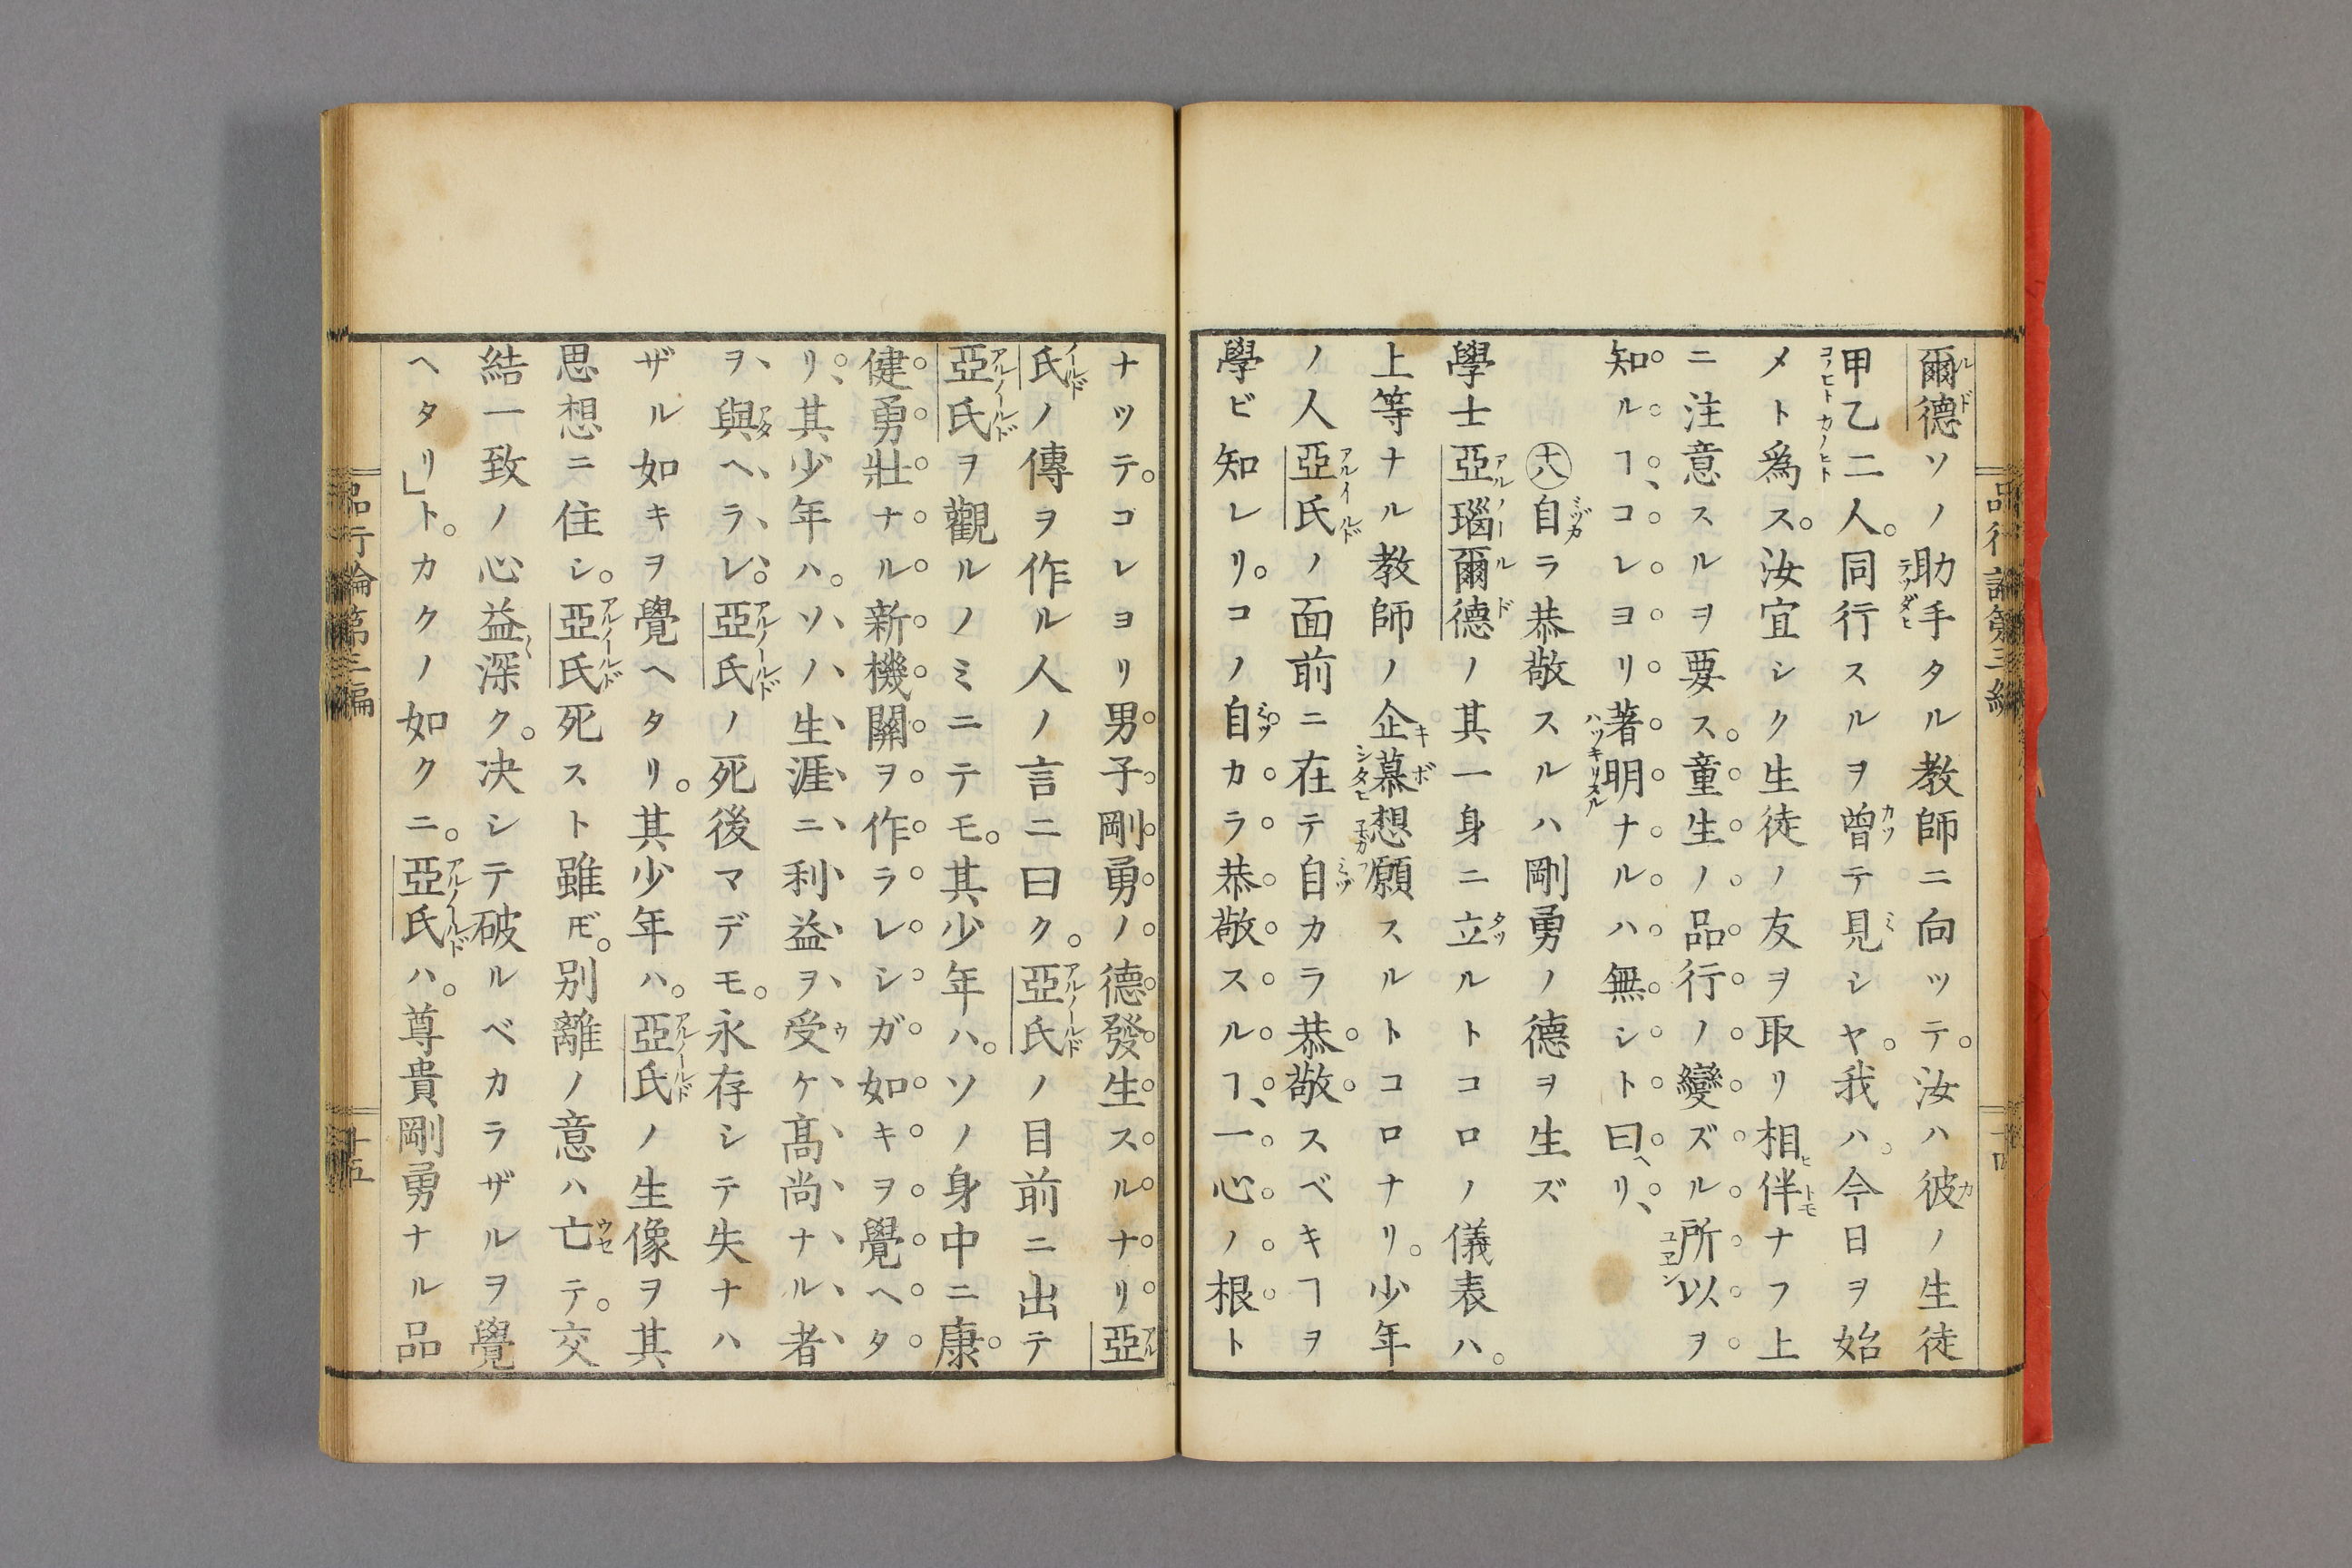 爾德ソノ助手タル教師ニ向ツテ。汝ハ彼ノ生徒
甲乙二人。同行スルヲ曾テ見シヤ。我ハ今日ヲ始
メト爲ス。汝宜シク生徒ノ友ヲ取リ相伴ナフ上
ニ注意スルヲ要ス。童生ノ品行ノ變ズル所以ヲ
知ルヿ、コレヨリ著明ナルハ無シト曰ヘリ、
㊉八自ラ恭敬スルハ剛勇ノ德ヲ生ズ
學士亞瑙爾德ノ其一身ニ立ルトコロノ儀表ハ。
上等ナル教師ノ企慕想願スルトコロナリ。少年
ノ人亞氏ノ面前ニ在テ自カラ恭敬スベキヿヲ
學ビ知レリ。コノ自カラ恭敬スルヿ、一心ノ根ト
品行論第三編
十四
ナツテ。コレヨリ男子剛勇ノ德發生スルナリ亞
氏ノ傳ヲ作ル人ノ言ニ曰ク。亞氏ノ目前ニ出テ
亞氏ヲ觀ルノミニテモ。其少年ハ。ソノ身中ニ康
健勇壯ナル新機關ヲ作ラレシガ如キヲ覺ヘタ
リ、其少年ハ。ソノ生涯ニ利益ヲ受ケ高尚ナル者
ヲ與ヘラレ。亞氏ノ死後マデモ。永存シテ失ナハ
ザル如キヲ覺ヘタリ。其少年ハ。亞氏ノ生像ヲ其
思想ニ住シ。亞氏死スト雖𪜈。別離ノ意ハ亡テ。交
結一致ノ心益深ク。决シテ破ルベカラザルヲ覺
ヘタリ」ト。カクノ如クニ。亞氏ハ。尊貴剛勇ナル品
品行論第三編
十五